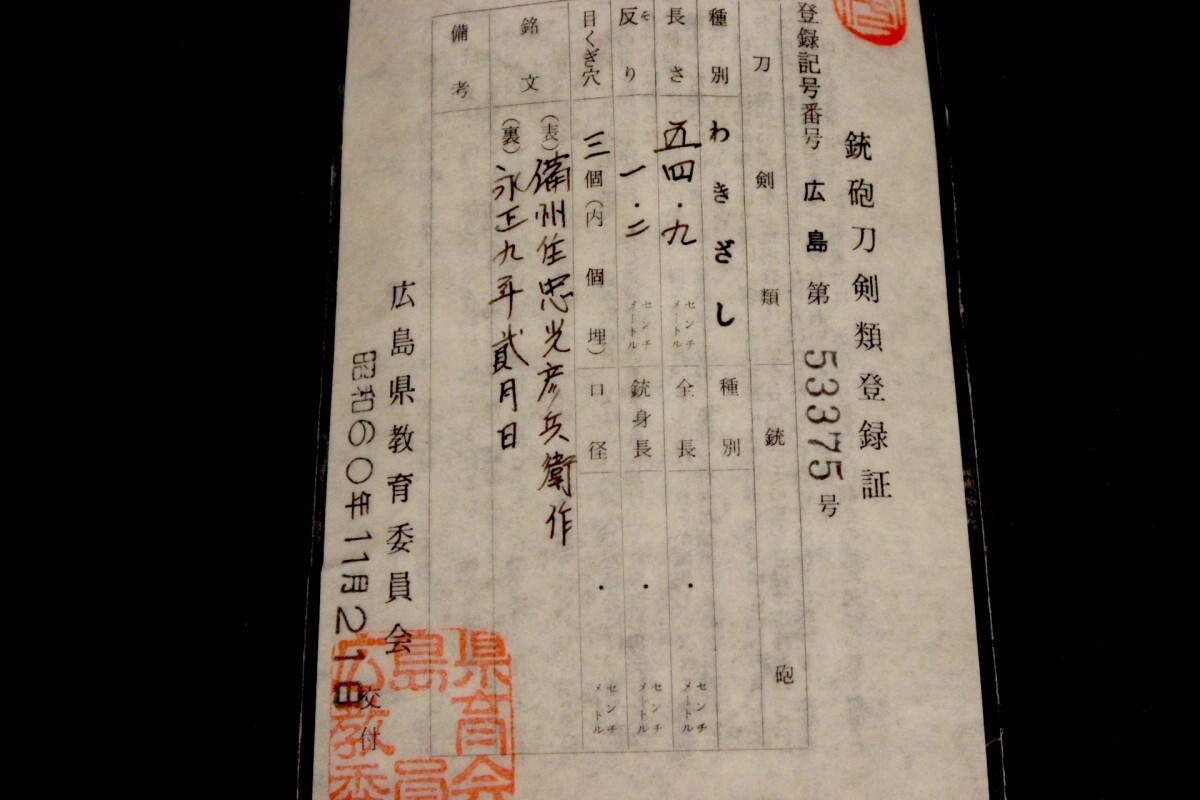 銃砲刀剣類登録証
登録記号番号 広島 第 53375 号
刀剣類 銃砲
種別 わきざし 種別
長さ 五四・九 センチメートル 全長 ・ センチメートル
反り 一・二 センチメートル 銃身長 ・ センチメートル
目くぎ穴 三個(内 個埋) 口径 ・ センチメートル
銘文 (表) 備州住忠光彦兵衛作
(裏) 永正九年貳月日
備考
広島県教育委員会
昭和60年11月21日 交付